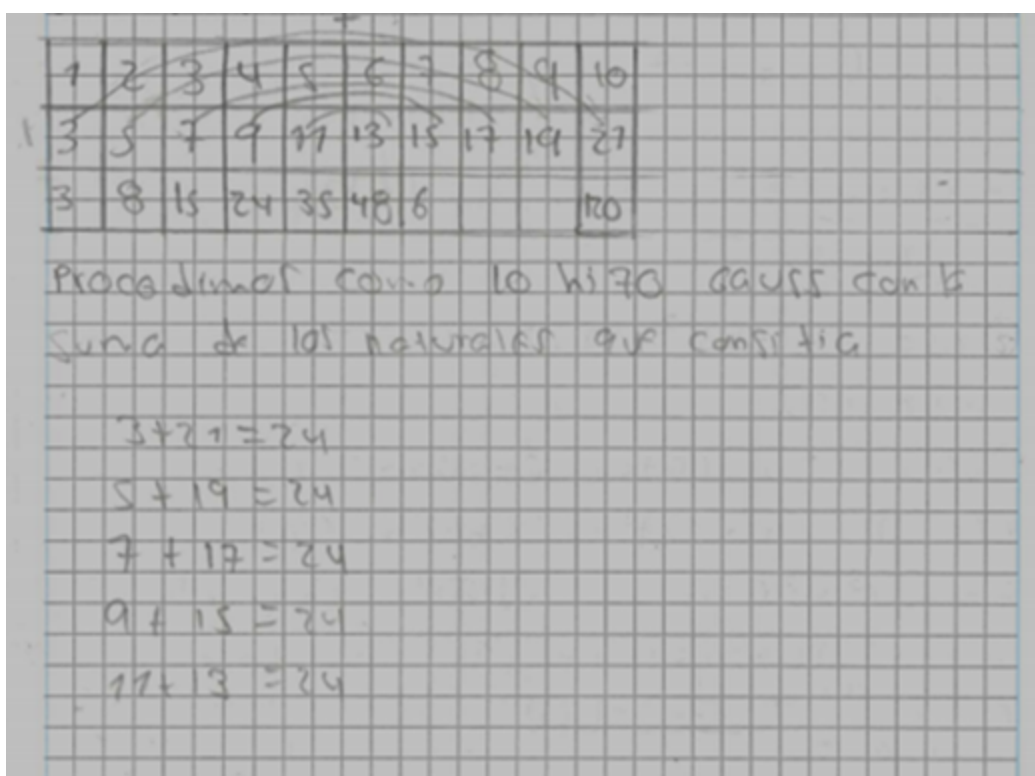 1 2 3 4 5 6 7 8 9 10
3 5 7 9 11 13 15 17 19 21
3 8 15 24 35 48 6 120
Procedimos como lo hizo Gauss con la
suma de los naturales que consistia
3+21=24
5+19=24
7+17=24
9+15=24
11+13=24